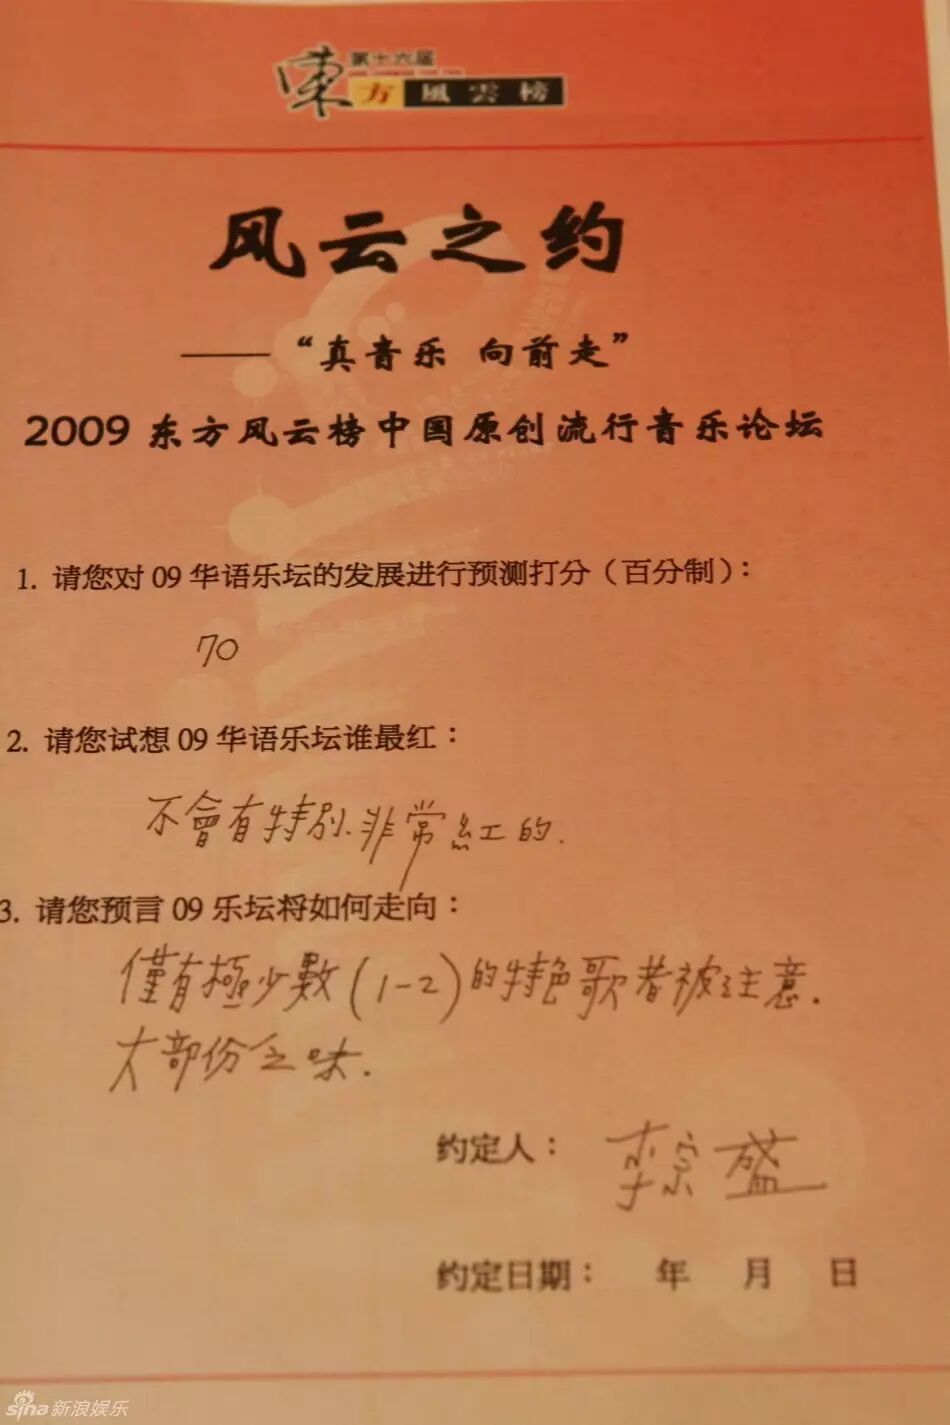 第十六届
東方風雲榜
风云之约
——“真音乐 向前走”
2009 东方风云榜中国原创流行音乐论坛
1. 请您对 09 华语乐坛的发展进行预测打分（百分制）：
70
2. 请您试想 09 华语乐坛谁最红：
不會有特别.非常紅的.
3. 请您预言 09 乐坛将如何走向：
僅有極少數(1-2)的特色歌者被注意.
大部份乏味.
约定人： 李宗盛
约定日期： 年 月 日
sina新浪娱乐